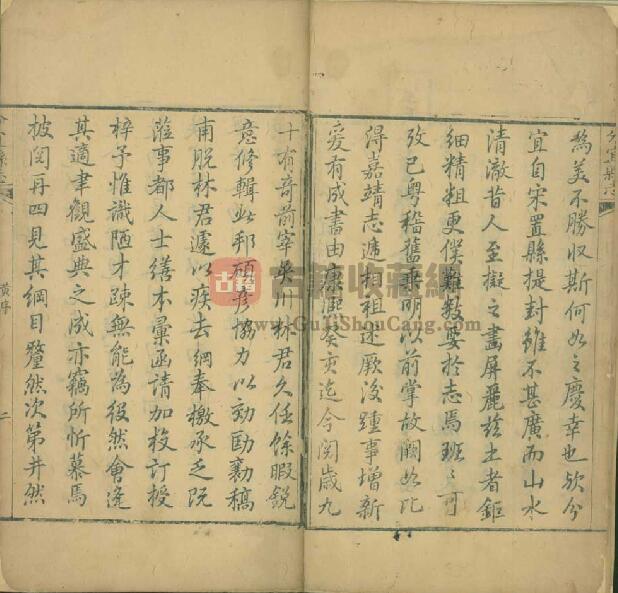 為美不勝収斯何如之慶幸也欤分
宜自宋置縣提封雖不甚廣而山水
清澈昔人至擬之畫屏麗茲土者鉅
細精粗更僕難数要於志焉班〻可
攷已粤稽舊乗明以前掌故闕如汔
得嘉靖志遞相祖述厥後踵事增新
爰有成書由康熙癸亥迄今閲歲九
十有奇前宰吳川林君久任餘暇銳
意修輯此邦碩彦協力以勷勛襄稿
甫脱林君遽以疾去綱奉檄承乏既
蒞事都人士繕本彙函請加挍訂授
梓予惟識陋才疎無能為役然會逢
其適聿觀盛典之成亦竊所忻慕焉
披閲再四見其綱目釐然次第井然
分宜縣志
黄序
二
古籍
古籍收藏網
www.GuJiShouCang.com